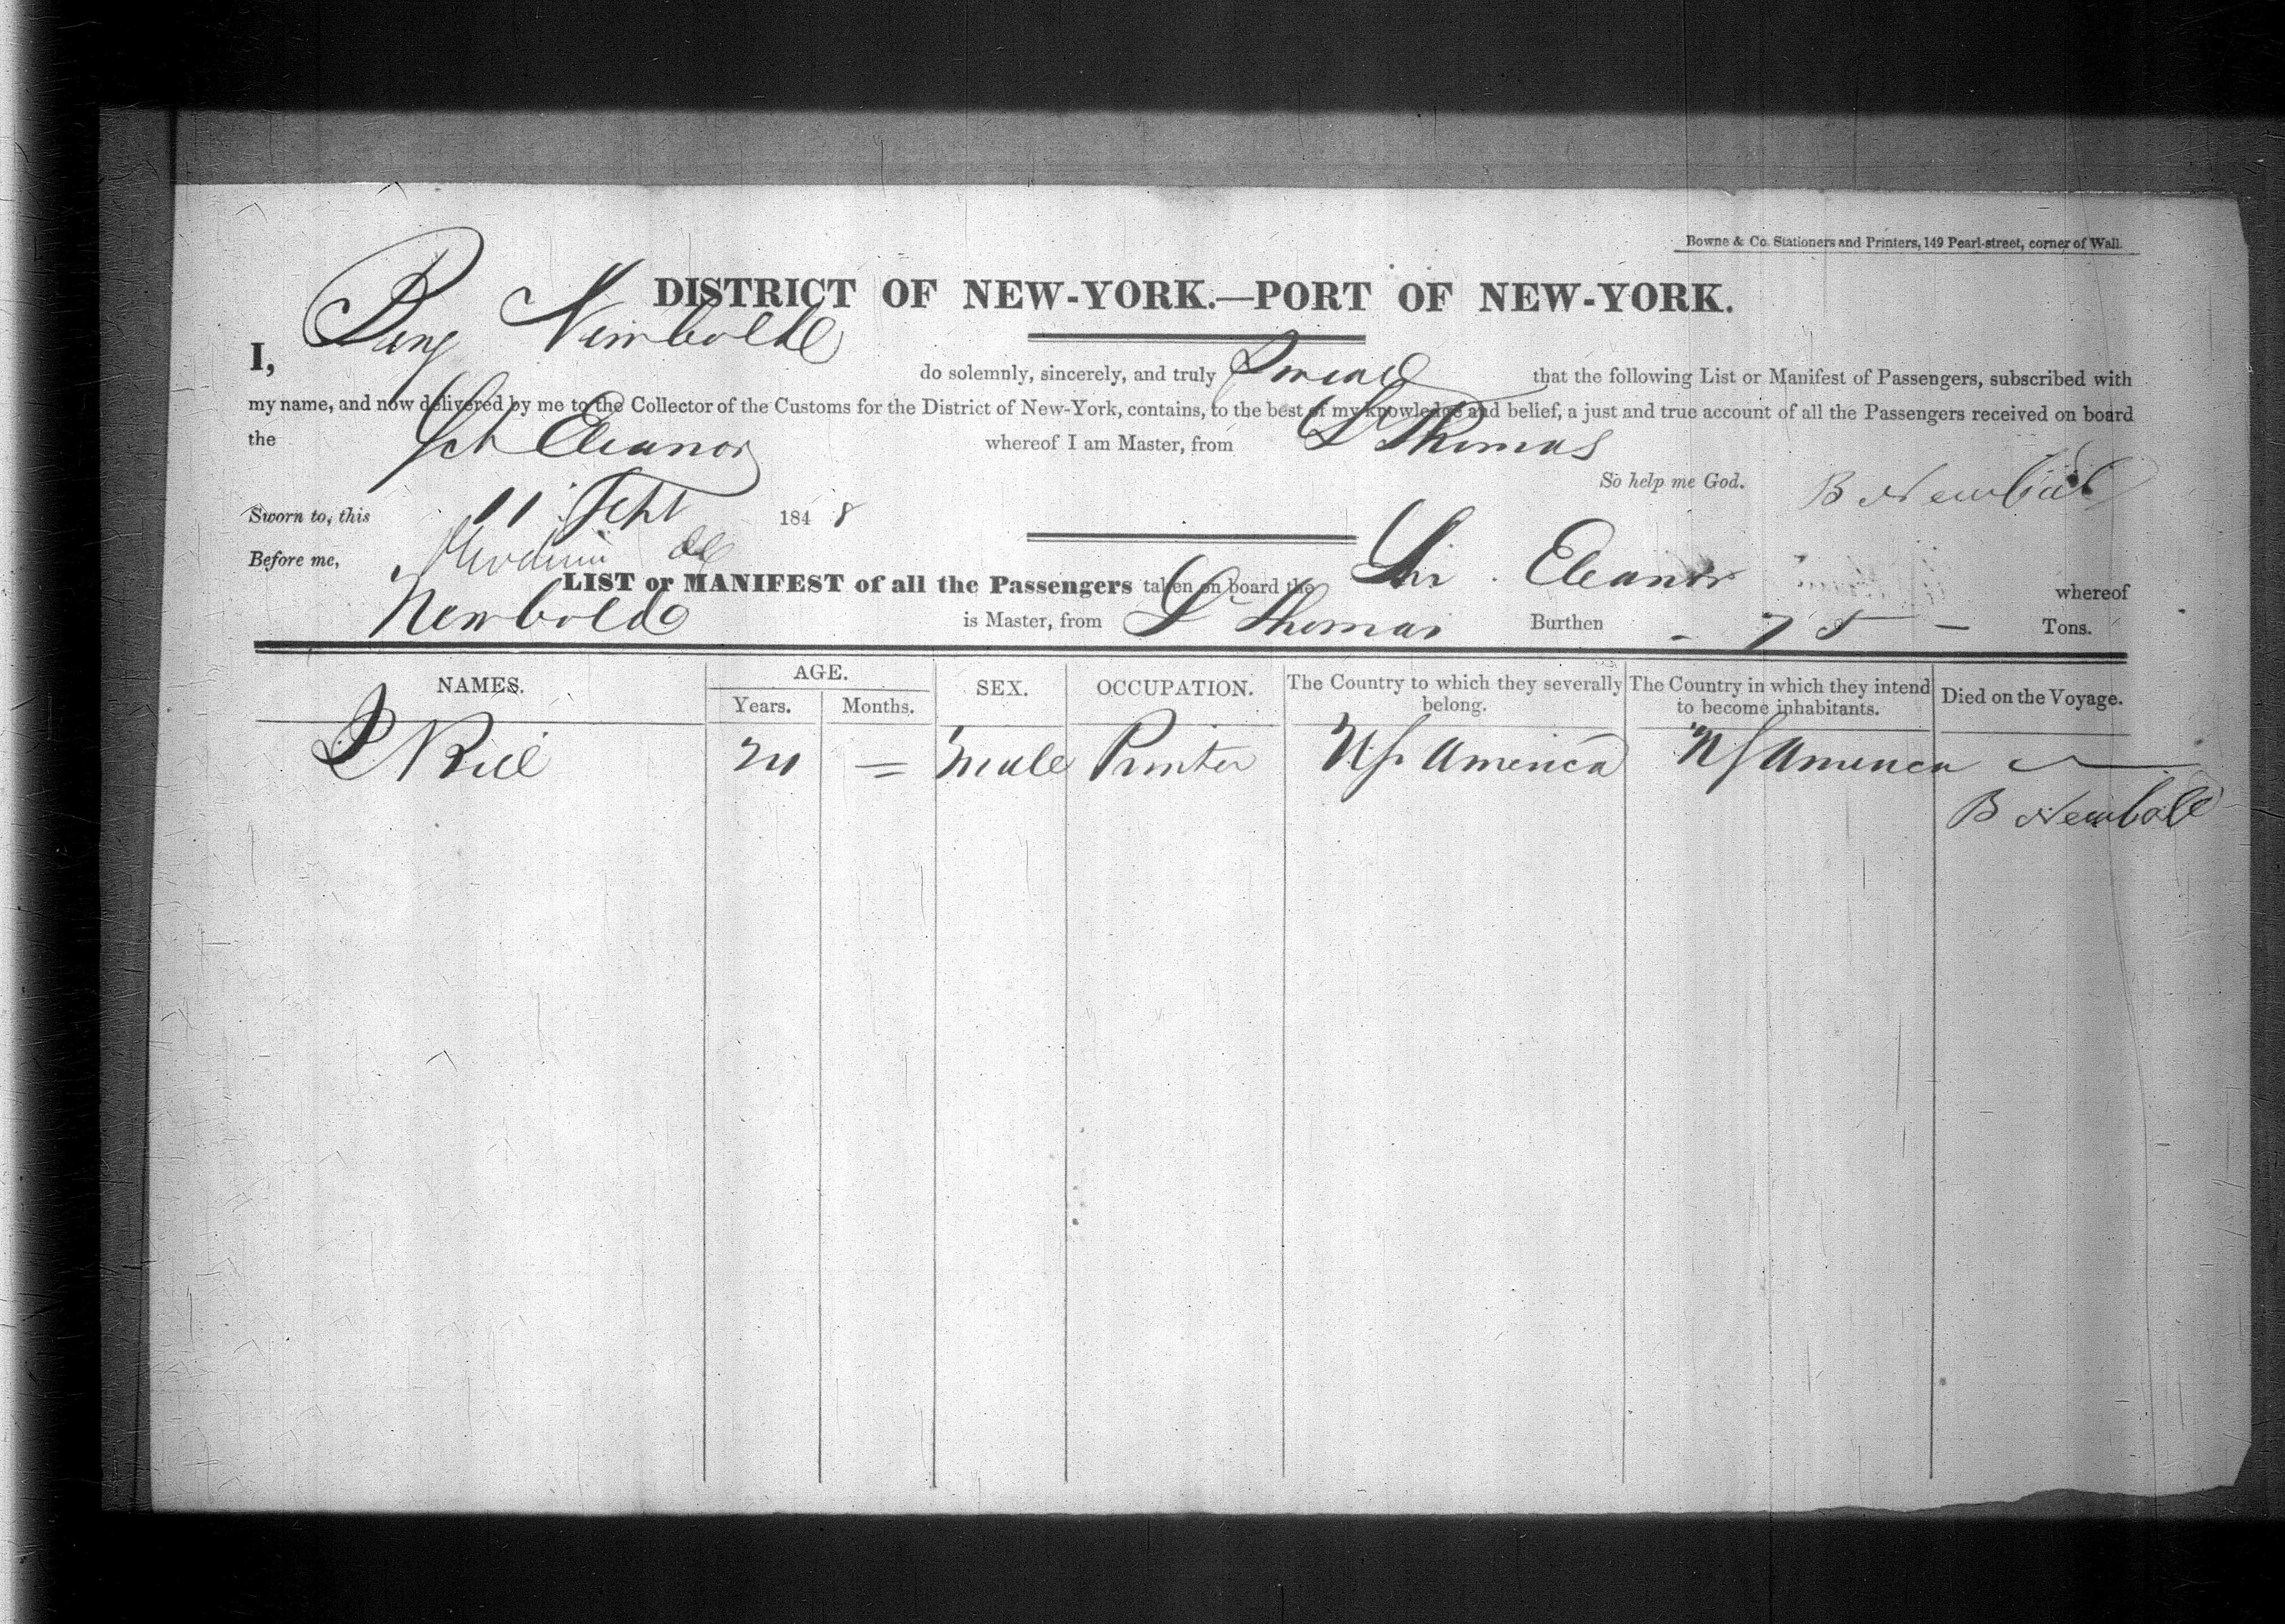 Bowne & Co. Stationers and Printers, 149 Pearl-street, corner of Wall.
DISTRICT OF NEW-YORK.—PORT OF NEW-YORK.
I, Benj Newbold do solemnly, sincerely, and truly Swear that the following List or Manifest of Passengers, subscribed with
my name, and now delivered by me to the Collector of the Customs for the District of New-York, contains, to the best of my knowledge and belief, a just and true account of all the Passengers received on board
the Sch Eleanor whereof I am Master, from St Thomas
So help me God. B Newbold
Sworn to, this 11 Sept 1848
Before me,
LIST or MANIFEST of all the Passengers taken on board the Schr Eleanor whereof
Newbold is Master, from St Thomas Burthen - 75 - Tons.
NAMES. AGE. SEX. OCCUPATION. The Country to which they severally belong. The Country in which they intend to become inhabitants. Died on the Voyage.
Years. Months.
Male Printer US America US America
B Newbold